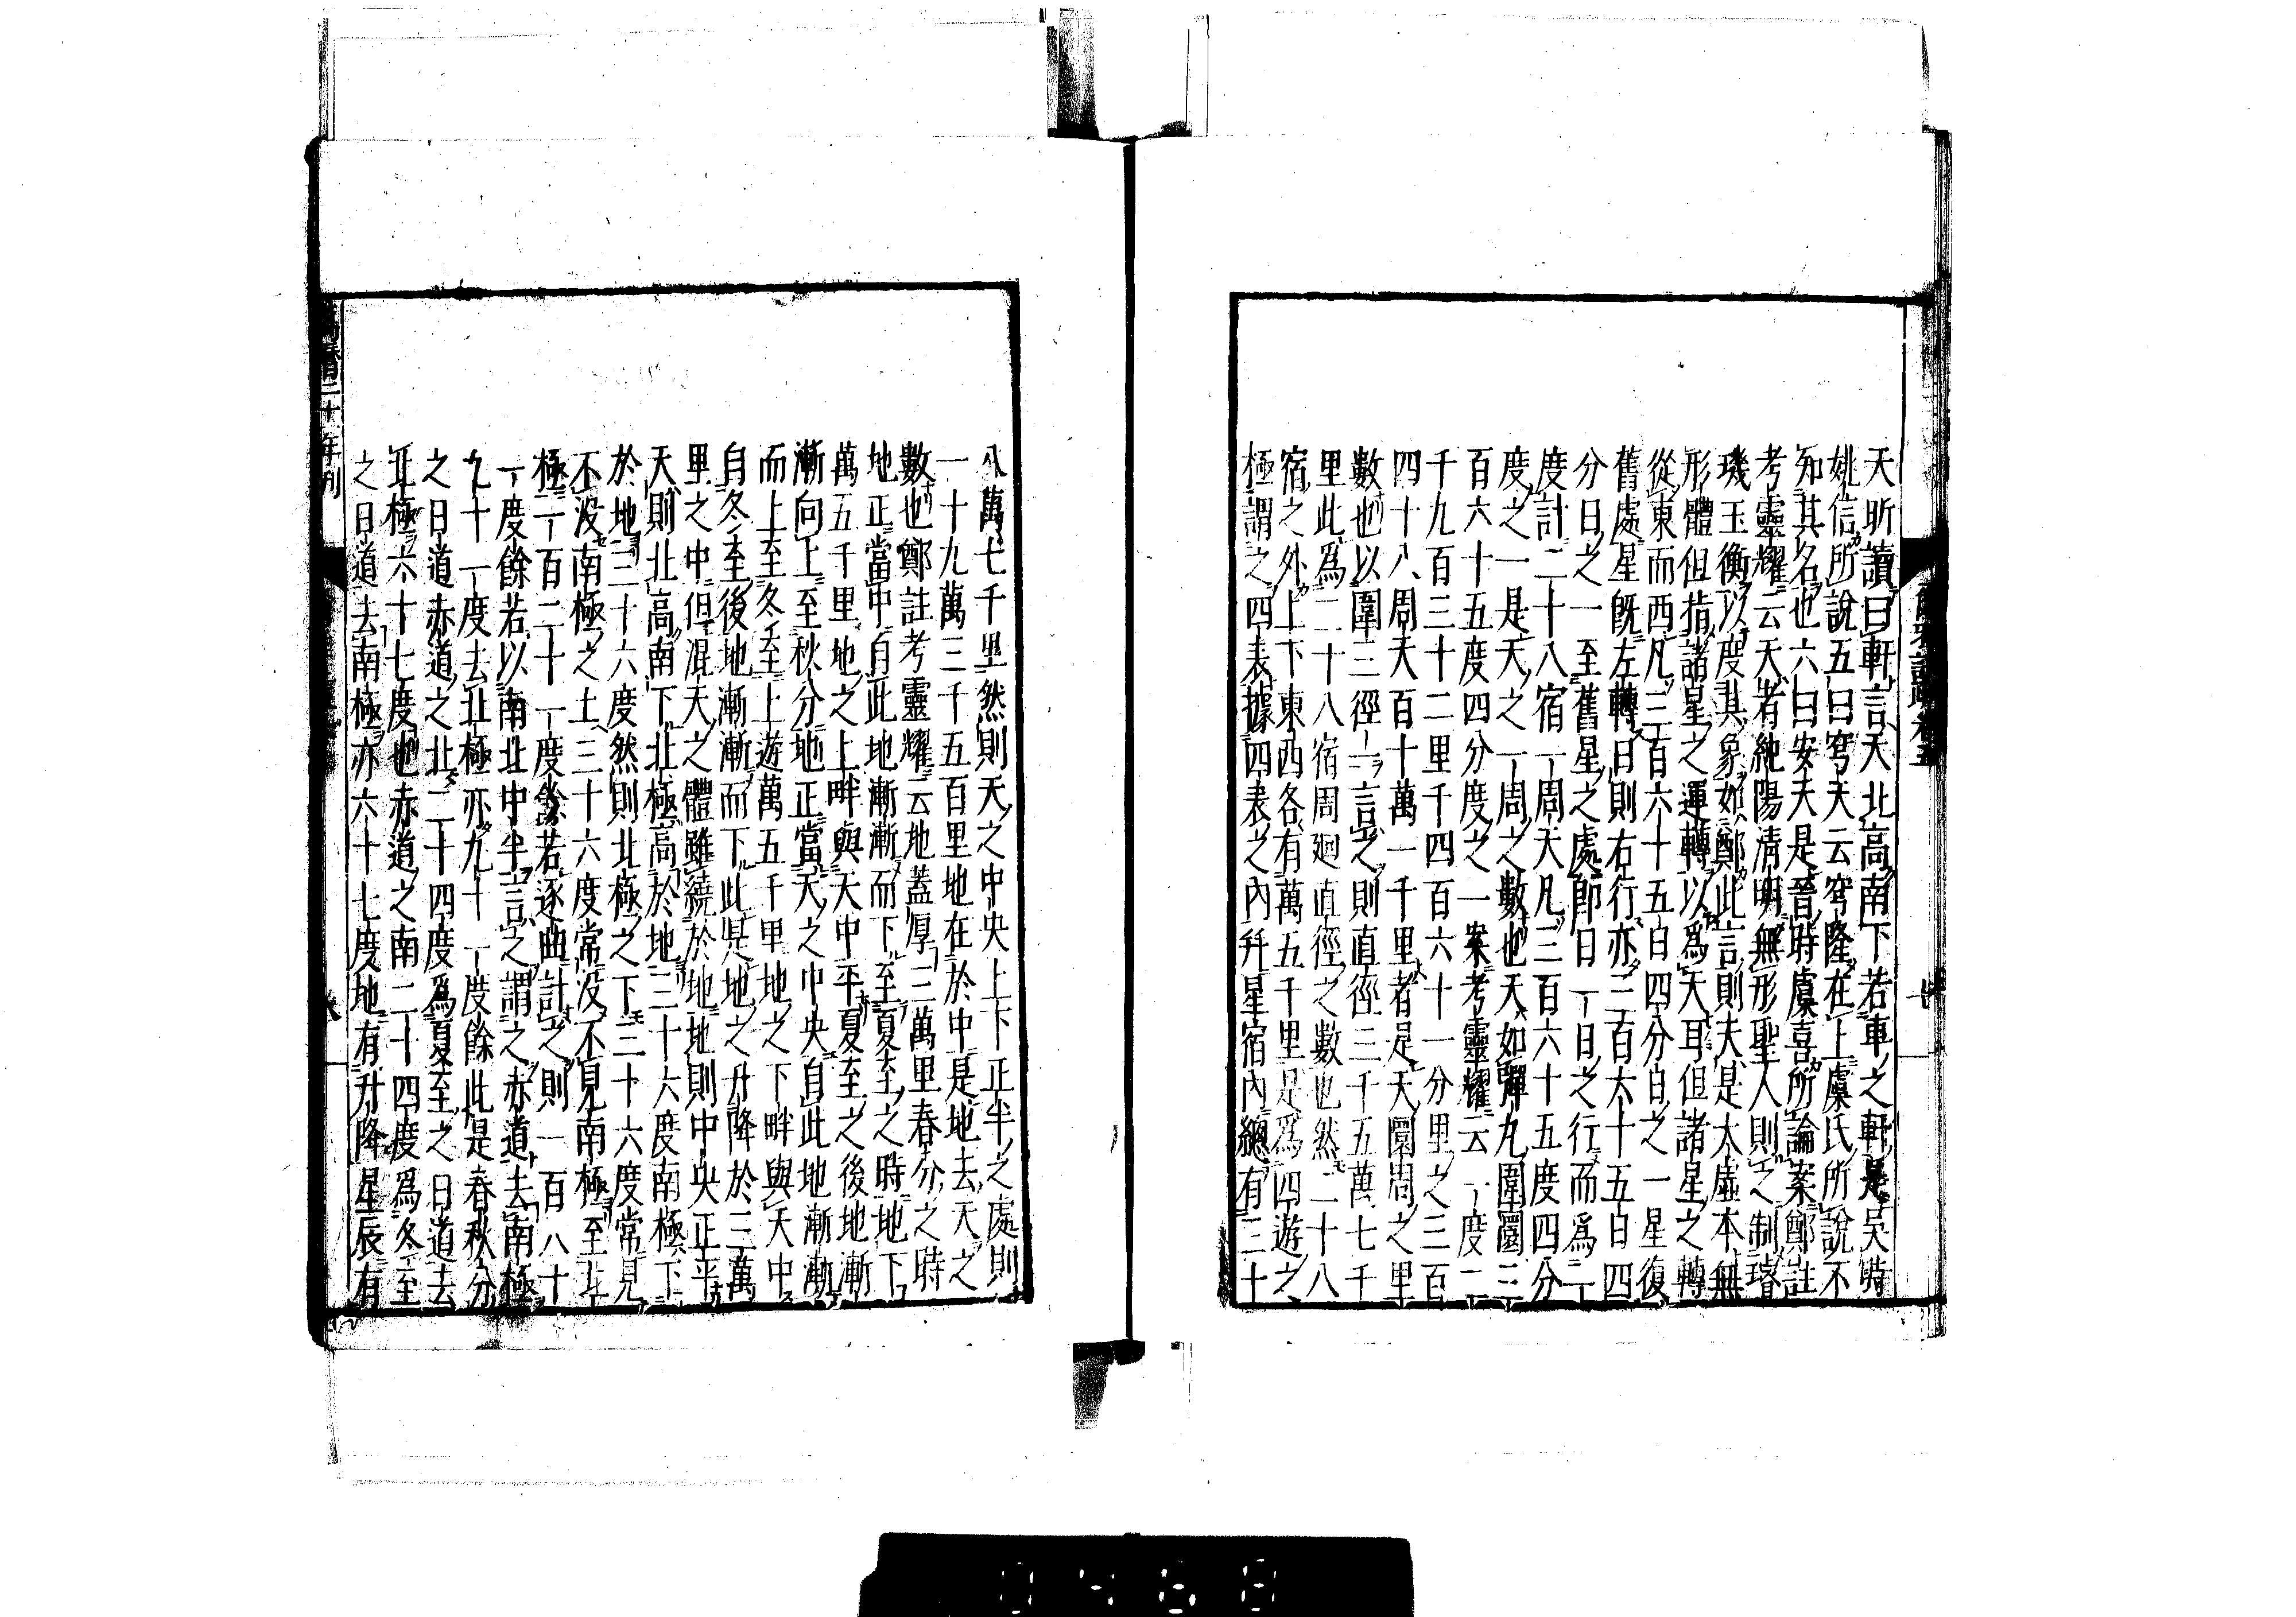 天昕讀曰軒言天北高南下若車之軒是吳時
姚信所說五曰穹天云穹隆在上虞氏所說不
知其名也六曰安天是晉時虞喜所論案鄭註
考靈耀云天者純陽清明無形聖人則之制璿
璣玉衡以度其象如鄭此言則天是太虛本無
形體但指諸星之運轉以爲天耳但諸星之轉
從東而西凡三百六十五日四分日之一星復
舊處星既左轉日則右行亦三百六十五日四
分日之一至舊星之處即日一日之行而爲一
度計二十八宿一周天凡三百六十五度四分
度之一是天之一周之數也天如彈丸圍圜三
百六十五度四分度之一案考靈耀云一度二
千九百三十二里千四百六十一分里之三百
四十八周天百十萬一千里者是天圜周之里
數也以圍三徑一言之則直徑三千五萬七千
里此爲二十八宿周廻直徑之數也然二十八
宿之外上下東西各有萬五千里是爲四遊之
極謂之四表據四表之內幷星宿內總有三十
爾雅註疏卷五
八萬七千里然則天之中央上下正半之處則
一十九萬三千五百里地在於中是地去天之
數也鄭註考靈耀云地蓋厚三萬里春分之時
地正當中自此地漸漸而下至夏至之時地下
萬五千里地之上畔與天中平夏至之後地漸
漸向上至秋分地正當天之中央自此地漸漸
而上至冬至上遊萬五千里地之下畔與天中
自冬至後地漸漸而下此是地之升降於三萬
里之中但渾天之體雖繞於地地則中央正平
天則北高南下北極高於地三十六度南極下
於地三十六度然則北極之下三十六度常見
不没南極之上三十六度常没不見南極至北
極一百二十一度餘若逐曲計之則一百八十
一度餘若以南北中半言之謂之赤道去南極
九十一度去北極亦九十一度餘此是春秋分
之日道赤道之北二十四度爲夏至之日道去
北極六十七度也赤道之南二十四度爲冬至
之日道去南極亦六十七度地有升降星辰有
萬曆二十年刊